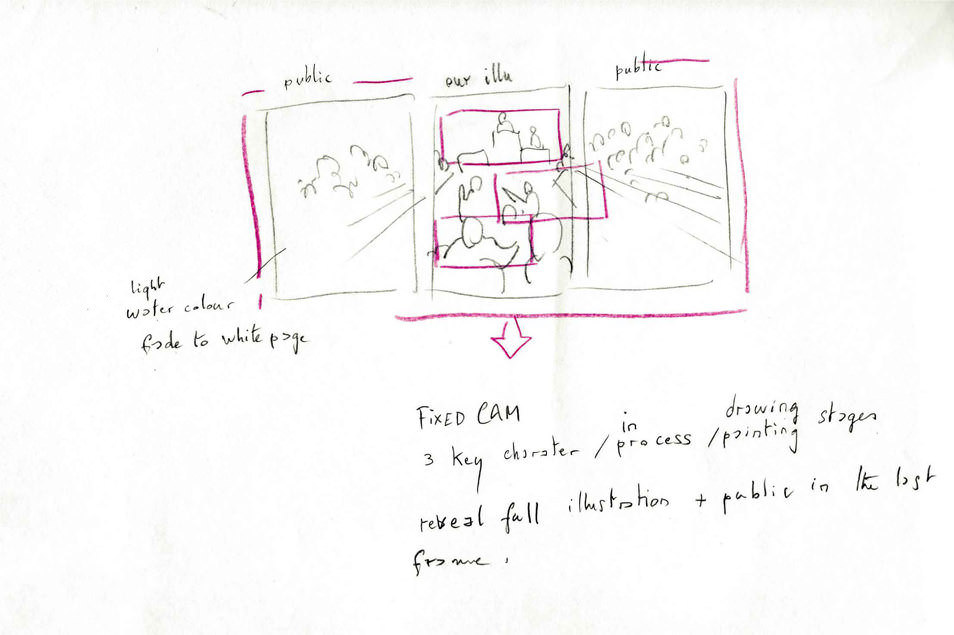 public
our illu
public
light
water colour
fade to white page
FIXED CAM
3 key charater / in process / drawing painting stages
reveal full illustration + public in the last
frame.